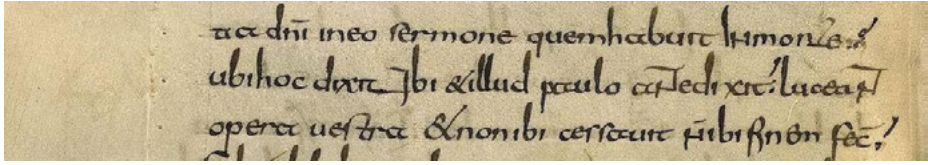 dnī ineo sermone quemhabuit Inmonte.
ubihoc dixit Ibi &illud paulo ante dixit. luceant
opera uestra &nonibi cessauit fec̄.